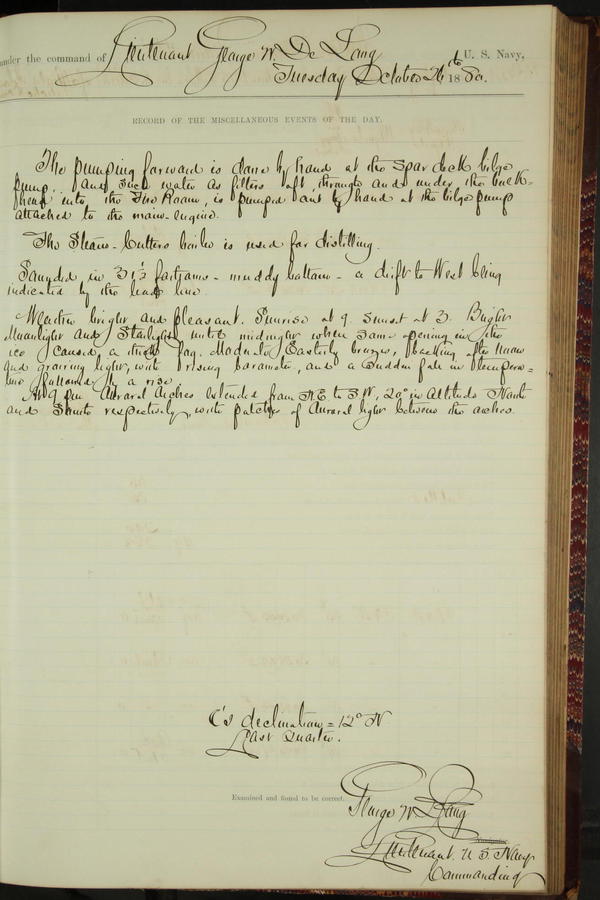 under the command of Lieutenant George W. De Long U. S. Navy,
Tuesday October 26th 1880.
RECORD OF THE MISCELLANEOUS EVENTS OF THE DAY.
The pumping forward is done by hand at the spar deck bilge
pump, and such water as filters aft, through and under the bulk-
head into the Fire Room, is pumped out by hand at the bilge pump
attached to the main engine.
The Steam-Cutters boiler is used for distilling.
Sounded in 31½ fathoms - muddy bottom - a drift to West being
indicated by the lead line.
Weather bright and pleasant. Sunrise at 9. Sunset at 3. Bright
Moonlight and Starlight until midnight when some opening in the
ice caused a thick fog. Moderate Easterly breezes, backing after noon
and growing light, with rising barometer, and a sudden fall in tempera=
ture followed by a rise.
At 9 pm Auroral Arches extended from N.E to S.W, 20° in altitude North
and South respectively, with patches of Auroral light between the arches.
☾'s declination = 12° N
Last Quarter.
Examined and found to be correct.
George W. De Long
Navigator.
Lieutenant. U. S. Navy
Commanding